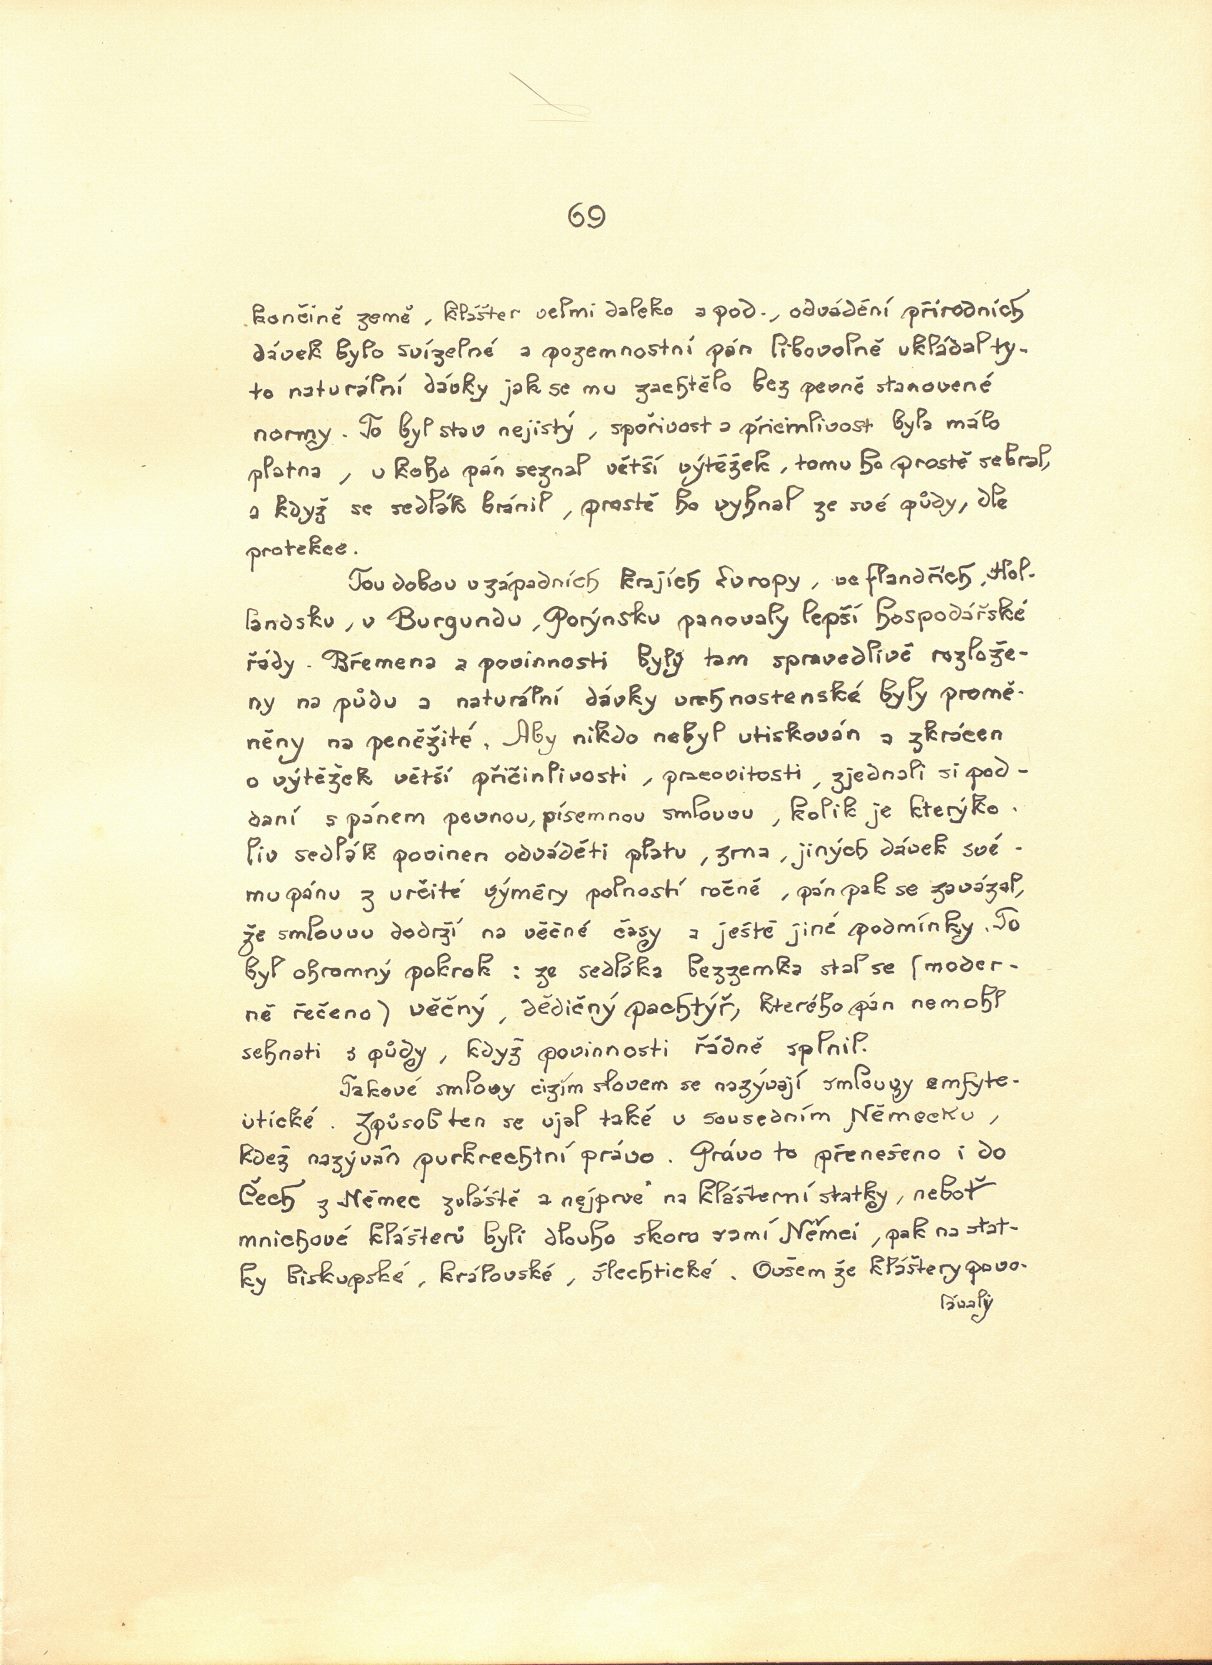 69
končině země, klášter velmi daleko a pod., odvádění přírodních
dávek bylo svízelné a pozemnostní pán libovolně ukládal ty-
to naturální dávky jak se mu zachtělo bez pevně stanovené
normy. To byl stav nejistý, spořivost a přičinlivost byla málo
platna, u koho pán seznal větší výtěžek, tomu ho prostě sebral,
a když se sedlák bránil, prostě ho vyhnal ze své půdy, dle
protekce.
Tou dobou v západních krajích Europy, ve flandřích, Hol-
landsku, v Burgundu, Porýnsku panovaly lepší hospodářské
řády. Břemena a povinnosti byly tam spravedlivě rozlože-
ny na půdu a naturální dávky vrchnostenské byly promě-
něny na peněžité. Aby nikdo nebyl utiskován a zkrácen
o výtěžek větší přičinlivosti, pracovitosti, zjednali si pod-
daní s pánem pevnou, písemnou smlouvu, kolik je kterýko-
liv sedlák povinen odváděti platu, zrna, jiných dávek své-
mu pánu z určité výměry polností ročně, pán pak se zavázal,
že smlouvu dodrží na věčné časy a ještě jiné podmínky. To
byl ohromný pokrok: ze sedláka bezzemka stal se (moder-
ně řečeno) věčný, dědičný pachtýř, kterého pán nemohl
sehnati s půdy, když povinnosti řádně splnil.
Takové smlouvy cizím slovem se nazývají smlouvy emfyte-
utické. Způsob ten se ujal také v sousedním Německu,
kdež nazýván purkrechtní právo. Právo to přenešeno i do
Čech z Němec zvláště a nejprve na klášterní statky, neboť
mnichové klášterů byli dlouho skoro samí Němci, pak na stat-
ky biskupské, královské, šlechtické. Ovšem že kláštery povo-
lávaly